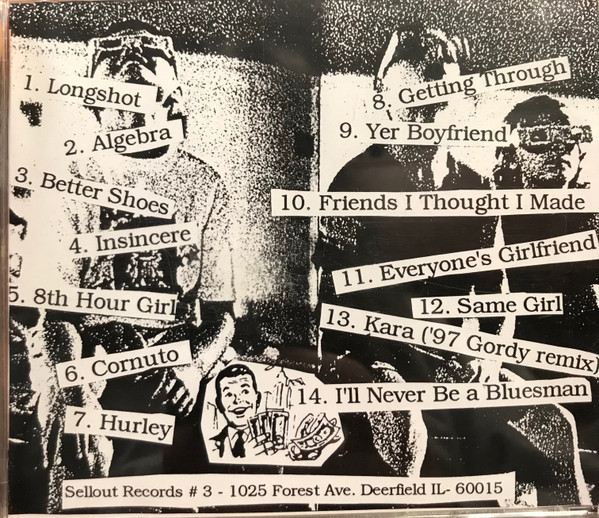 1. Longshot
2. Algebra
3. Better Shoes
4. Insincere
5. 8th Hour Girl
6. Cornuto
7. Hurley
8. Getting Through
9. Yer Boyfriend
10. Friends I Thought I Made
11. Everyone's Girlfriend
12. Same Girl
13. Kara ('97 Gordy remix)
14. I'll Never Be a Bluesman
Sellout Records # 3 - 1025 Forest Ave. Deerfield IL- 60015